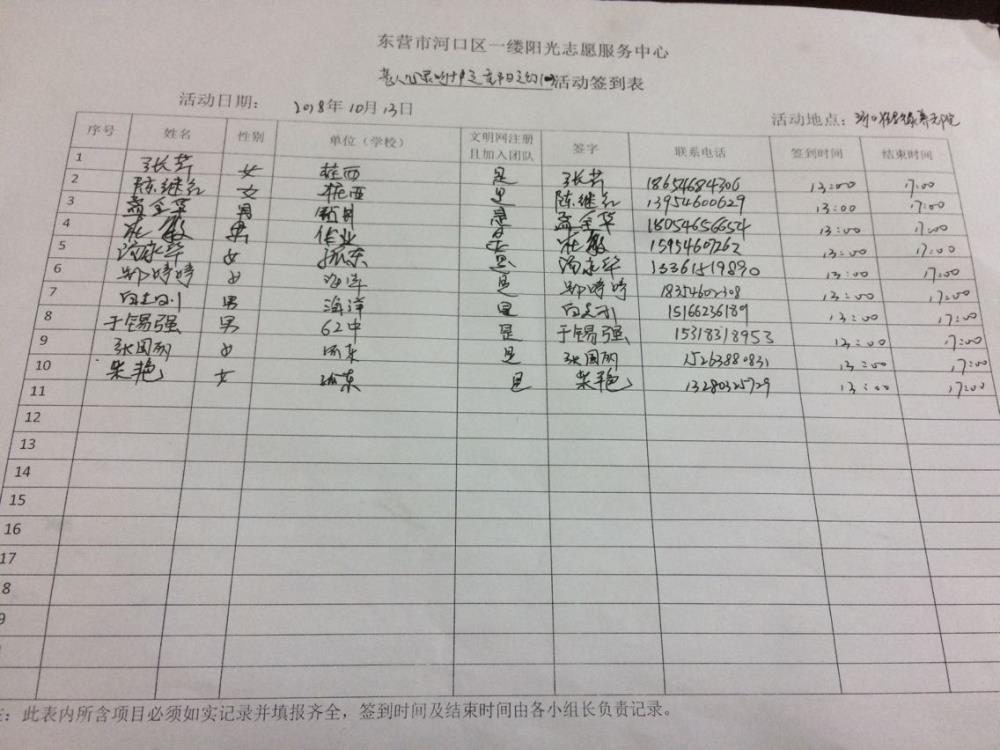 东营市河口区一缕阳光志愿服务中心
活动签到表
活动日期： 2018年10月13日 活动地点：
序号 姓名 性别 单位（学校） 文明网注册且加入团队 签字 联系电话 签到时间 结束时间
1 张芳 女 桩西 是 张芳 18654684306 13:00 17:00
2 陈继红 女 桩西 是 陈继红 13954600629 13:00 17:00
3 孟金华 男 是 孟金华 18054656654 13:00 17:00
4 男 作业 是 15954607262 13:00 17:00
5 女 孤东 是 13361519890 13:00 17:00
6 郑婷婷 女 海洋 是 郑婷婷 13:00 17:00
7 男 海洋 是 15166236189 13:00 17:00
8 于锡强 男 62中 是 于锡强 15318318953 13:00 17:00
9 张国丽 女 是 张国丽 15263880831 13:00 17:00
10 柴艳 女 孤东 是 柴艳 13280325729 13:00 17:00
11
12
13
14
15
16
17
8
9
：此表内所含项目必须如实记录并填报齐全，签到时间及结束时间由各小组长负责记录。